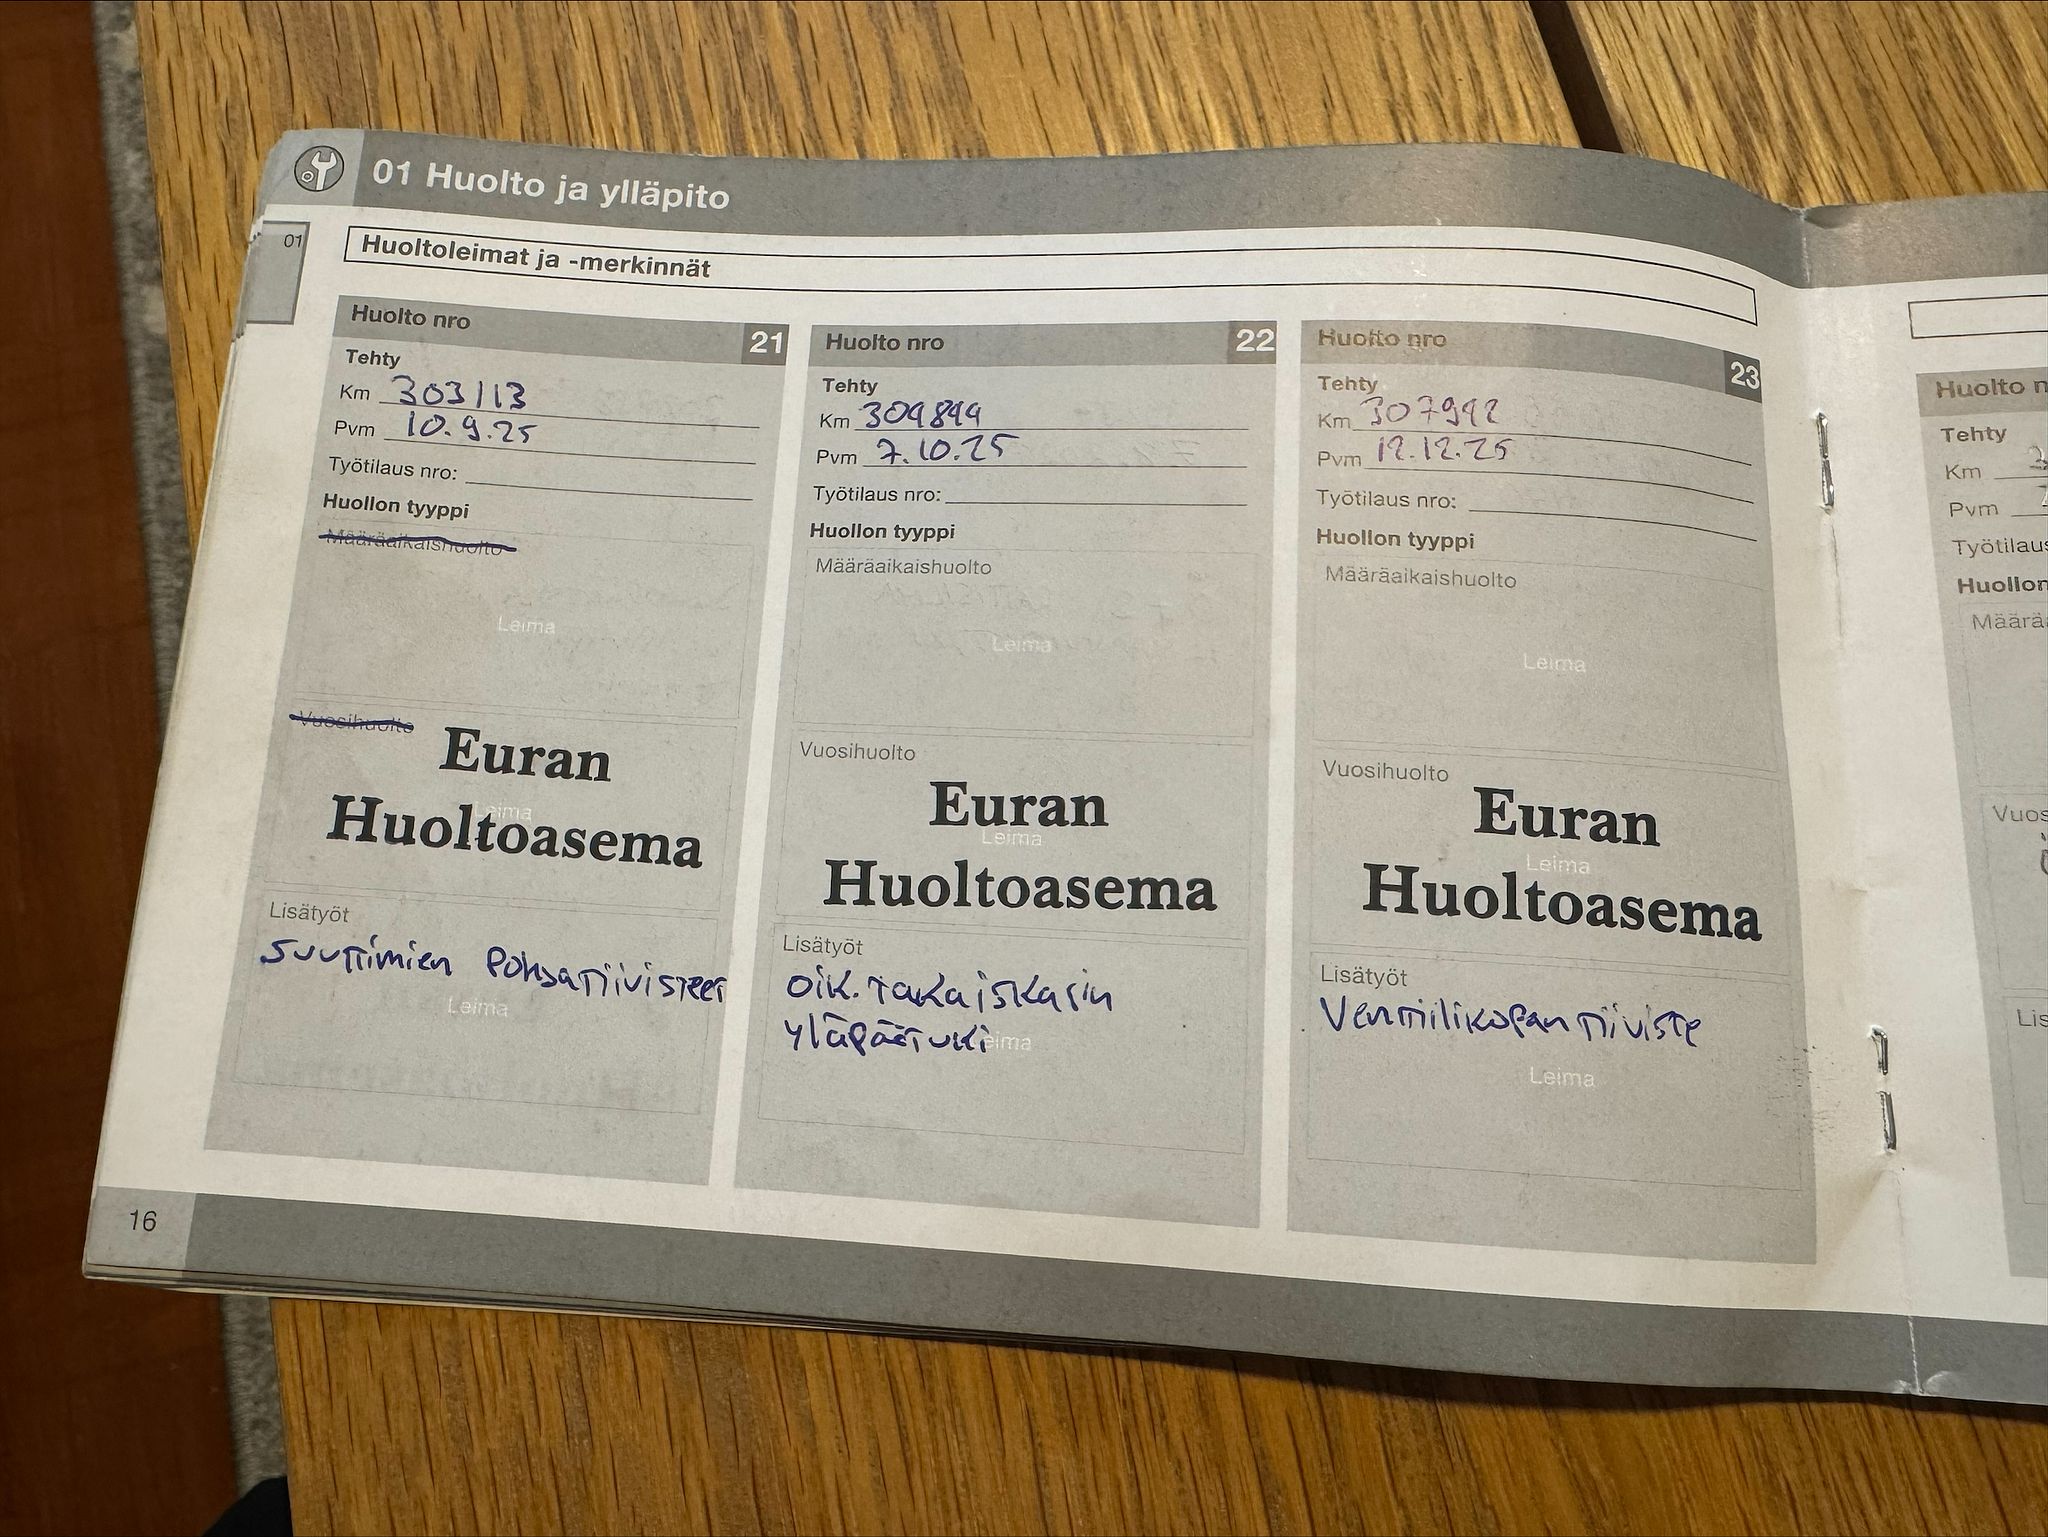 01 Huolto ja ylläpito
01
Huoltoleimat ja -merkinnät
Huolto nro 21
Tehty
Km 303113
Pvm 10.9.25
Työtilaus nro:
Huollon tyyppi
Määräaikaishuolto
Leima
Vuosihuolto
Euran
Leima
Huoltoasema
Lisätyöt
Suuttimien Pohjatiivisteet
Leima
Huolto nro 22
Tehty
Km 304844
Pvm 7.10.25
Työtilaus nro:
Huollon tyyppi
Määräaikaishuolto
Leima
Vuosihuolto
Euran
Leima
Huoltoasema
Lisätyöt
oik. takaiskarin
yläpäätuki
Leima
Huolto nro 23
Tehty
Km 307942
Pvm 12.12.25
Työtilaus nro:
Huollon tyyppi
Määräaikaishuolto
Leima
Vuosihuolto
Euran
Leima
Huoltoasema
Lisätyöt
Venttiilikopan tiiviste
Leima
16
Huolto n
Tehty
Km
Pvm
Työtilaus
Huollon
Määrä
Vuos
Lis